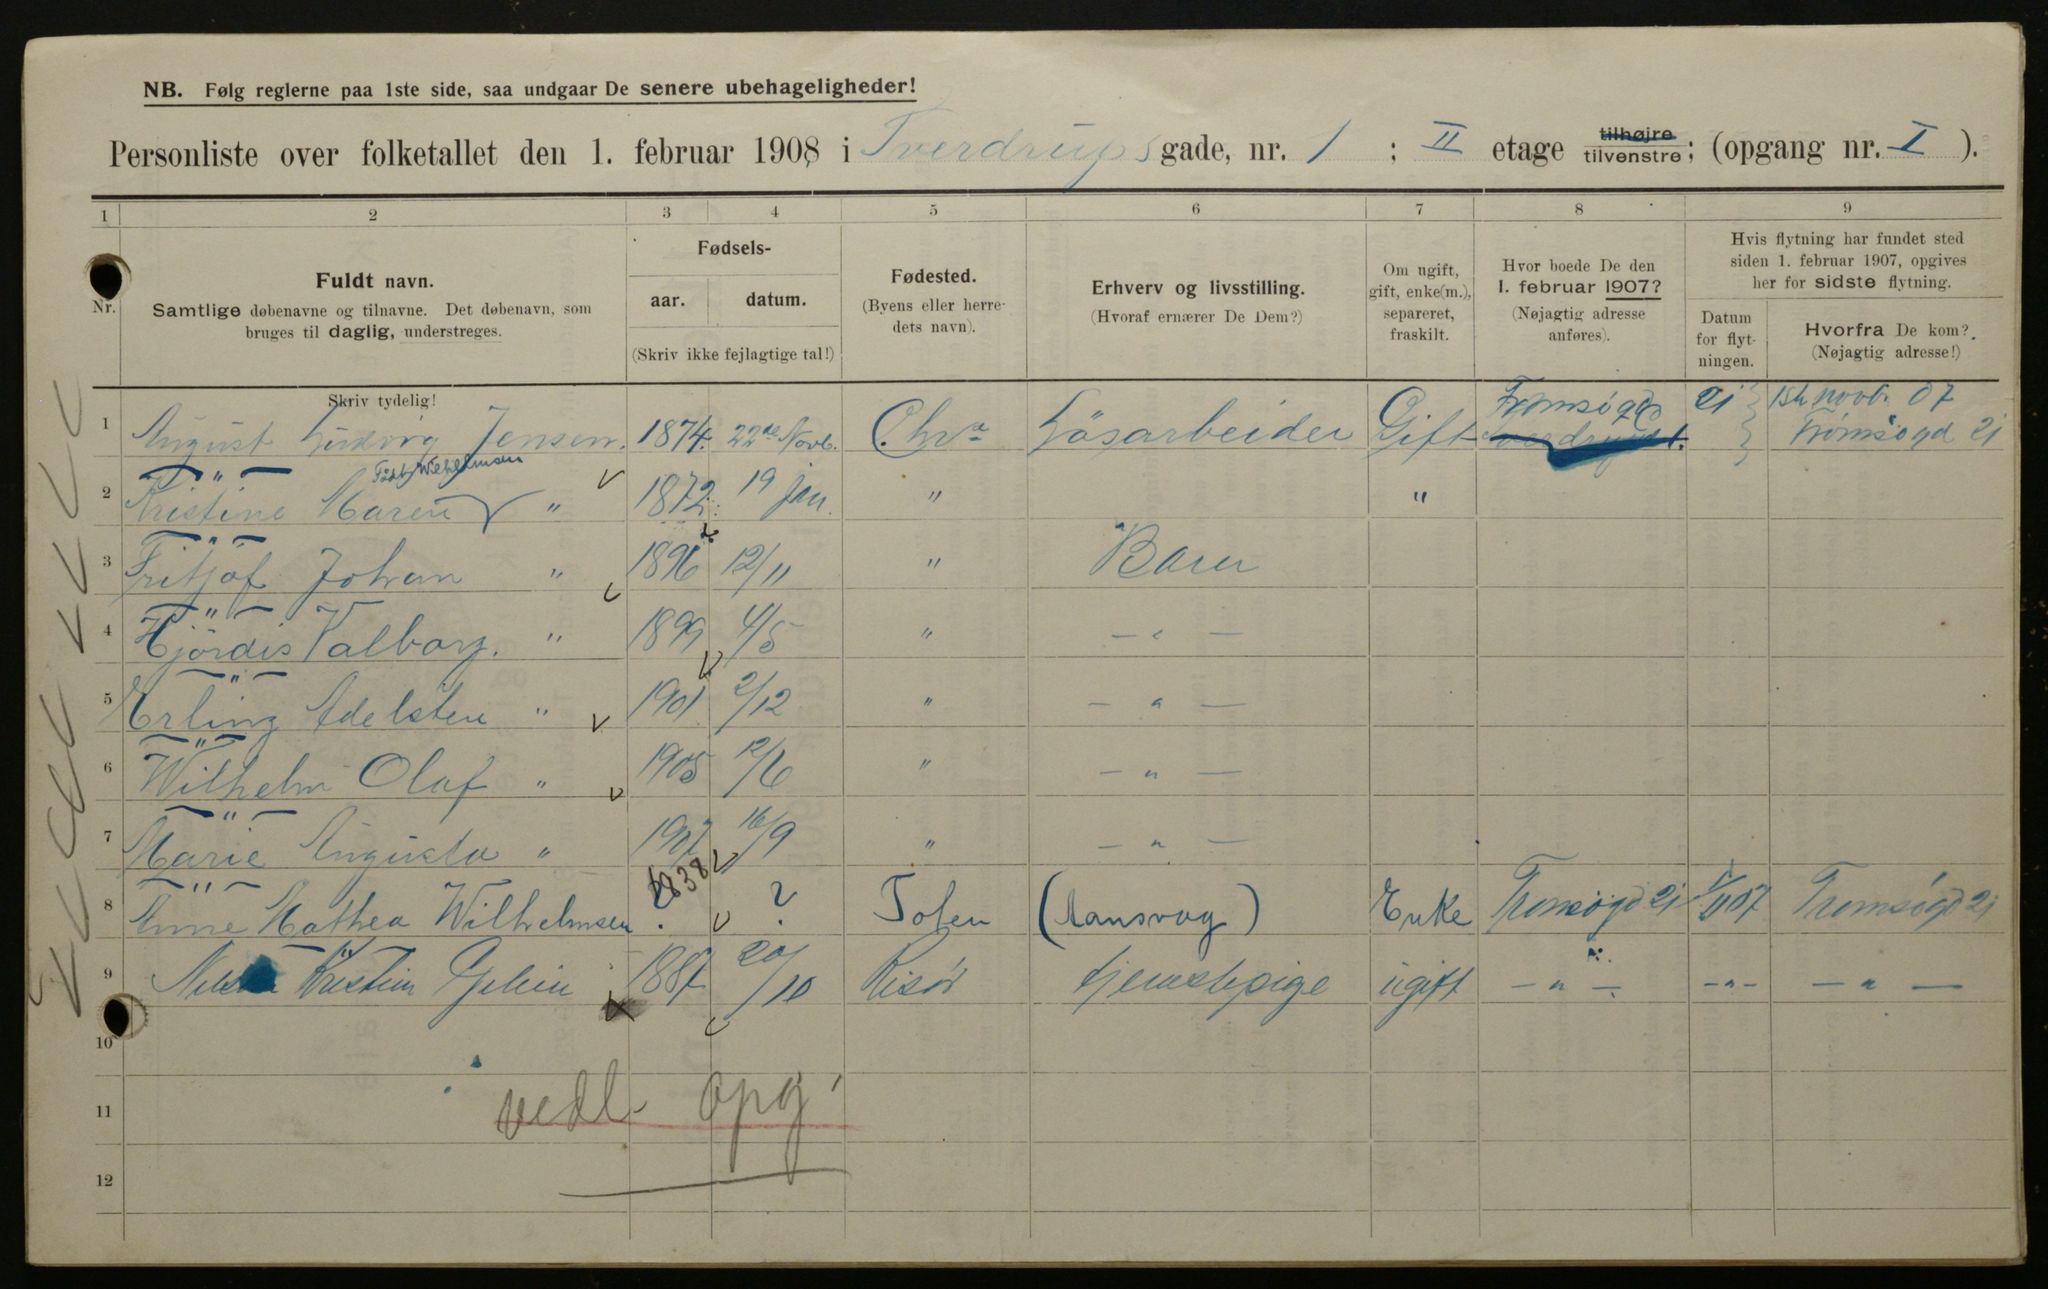 NB. Følg reglerne paa 1ste side, saa undgaar De senere ubehageligheder!
Personliste over folketallet den 1. februar 1908 i Sverdrups gade, nr. 1 ; II etage tilhøjre tilvenstre; (opgang nr. I ).
1 2 3 4 5 6 7 8 9
Nr. Fuldt navn. Samtlige døbenavne og tilnavne. Det døbenavn, som bruges til daglig, understreges. Skriv tydelig!
Fødsels- aar. datum. (Skriv ikke fejlagtige tal!)
Fødested. (Byens eller herredets navn).
Erhverv og livsstilling. (Hvoraf ernærer De Dem?)
Om ugift, gift, enke(m.), separeret, fraskilt.
Hvor boede De den 1. februar 1907? (Nøjagtig adresse anføres).
Hvis flytning har fundet sted siden 1. februar 1907, opgives her for sidste flytning.
Datum for flytningen. Hvorfra De kom? (Nøjagtig adresse!)
1 August Ludvig Jensen. 1874. 22de Novb. Chra Løsarbeider Gift Tromsøgd 21 1st novb. 07 Tromsøgd 21
2 Kristine Maren " Født Wilhelmsen 1872. 19 Jan. " "
3 Fritjof Johan " 1896 12/11 " Barn
4 Hjördis Valborg. " 1899 4/5 " — " —
5 Erling Adelsten " 1901 2/12 " — " —
6 Wilhelm Olaf " 1905 12/6 " — " —
7 Marie Augusta " 1907 16/9 " — " —
8 Anne Mathea Wilhelmsen 1838 ? Toten (Mansvag) Enke Tromsøgd 21 1/11 07 Tromsøgd 21
9 Kristine 1887 20/10 Risör tjenstepige ugift — " — — " — — " —
10
11 vedl. opg
12